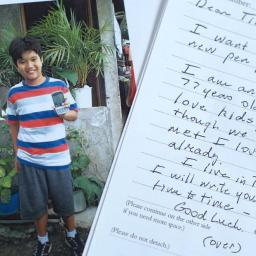 Dear Ti
I want
new pen
I am an
?? years ol
love kids
though we
met I lo
already.
I live in T
I will write you
time to time -
Good Luck.
(Please continue on the other side
if you need more space.)
(over)
(Please do not detach.)